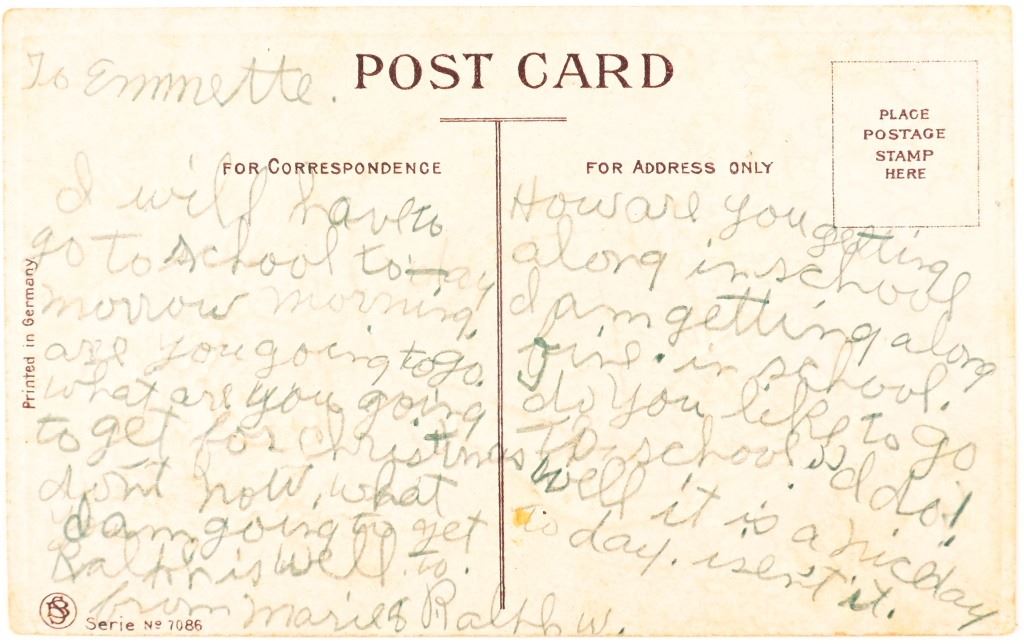 To Emmette.
POST CARD
PLACE
POSTAGE
STAMP
HERE
FOR CORRESPONDENCE
FOR ADDRESS ONLY
Printed in Germany
I will have to
go to school to-day
morrow morning,
are you going to go.
what are you going
to get for christmas
dont now, what
I am going to get
Ralph is well to.
from Marie & Ralph W.
How are you getting
along in school
I am getting along
fine. in school.
do you like to go
To school I do!
Well it is a nice day
to day. isent it.
Serie No 7086